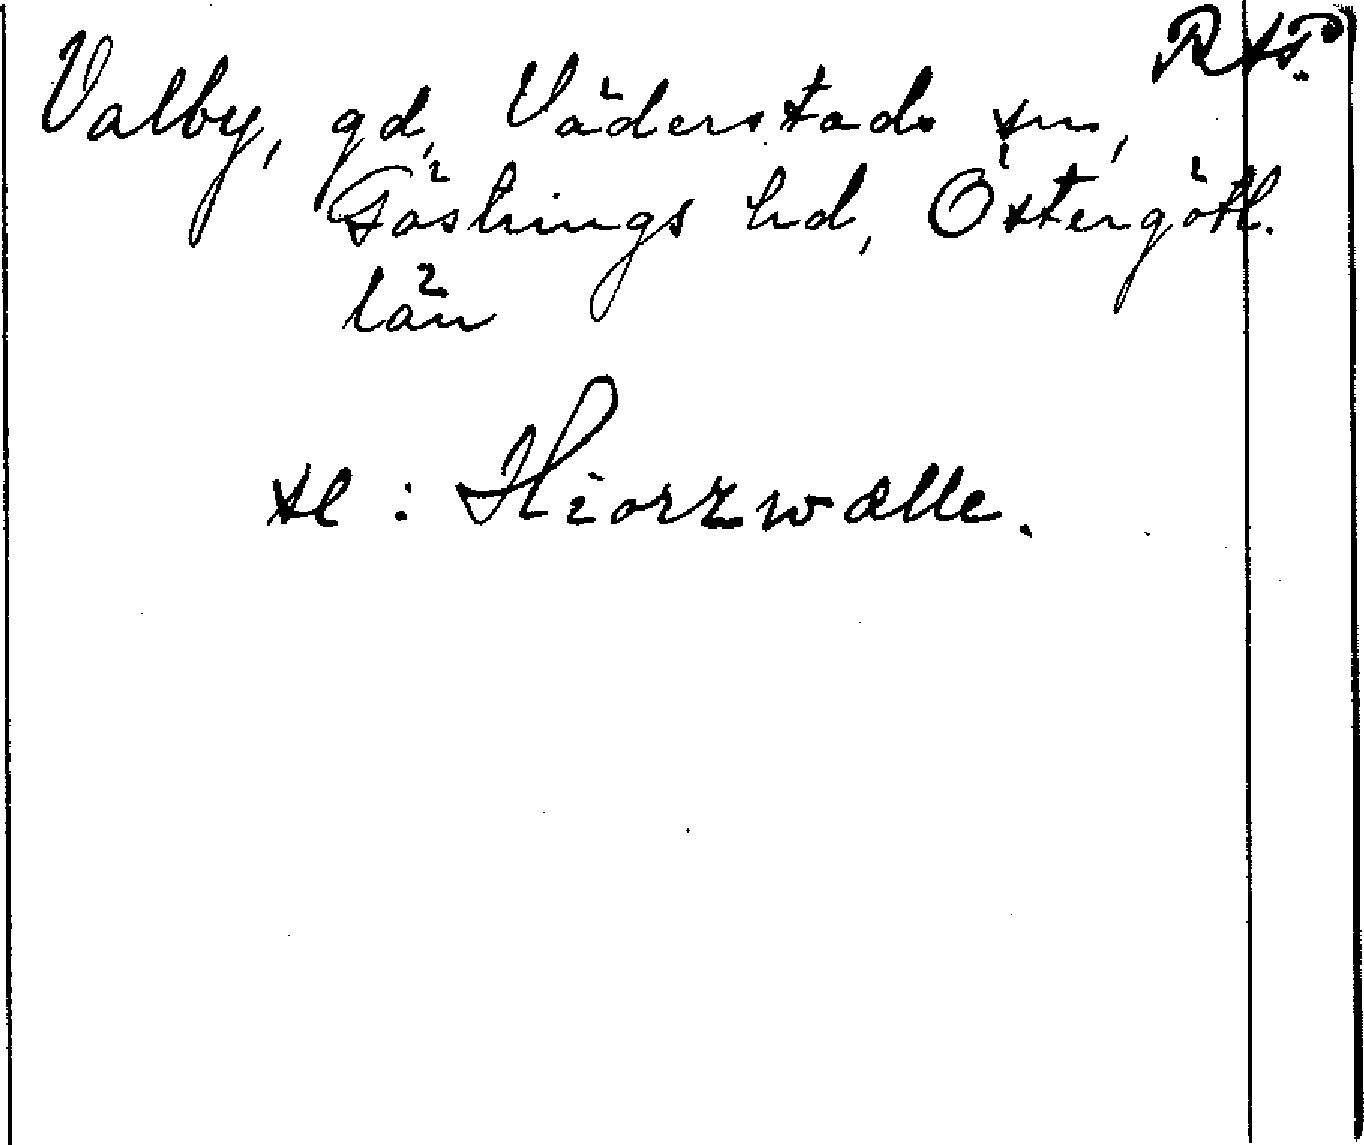 Valby, gd, Väderstads sn,
Göstrings hd, Östergötl.
län
se : Hiorzwælle.